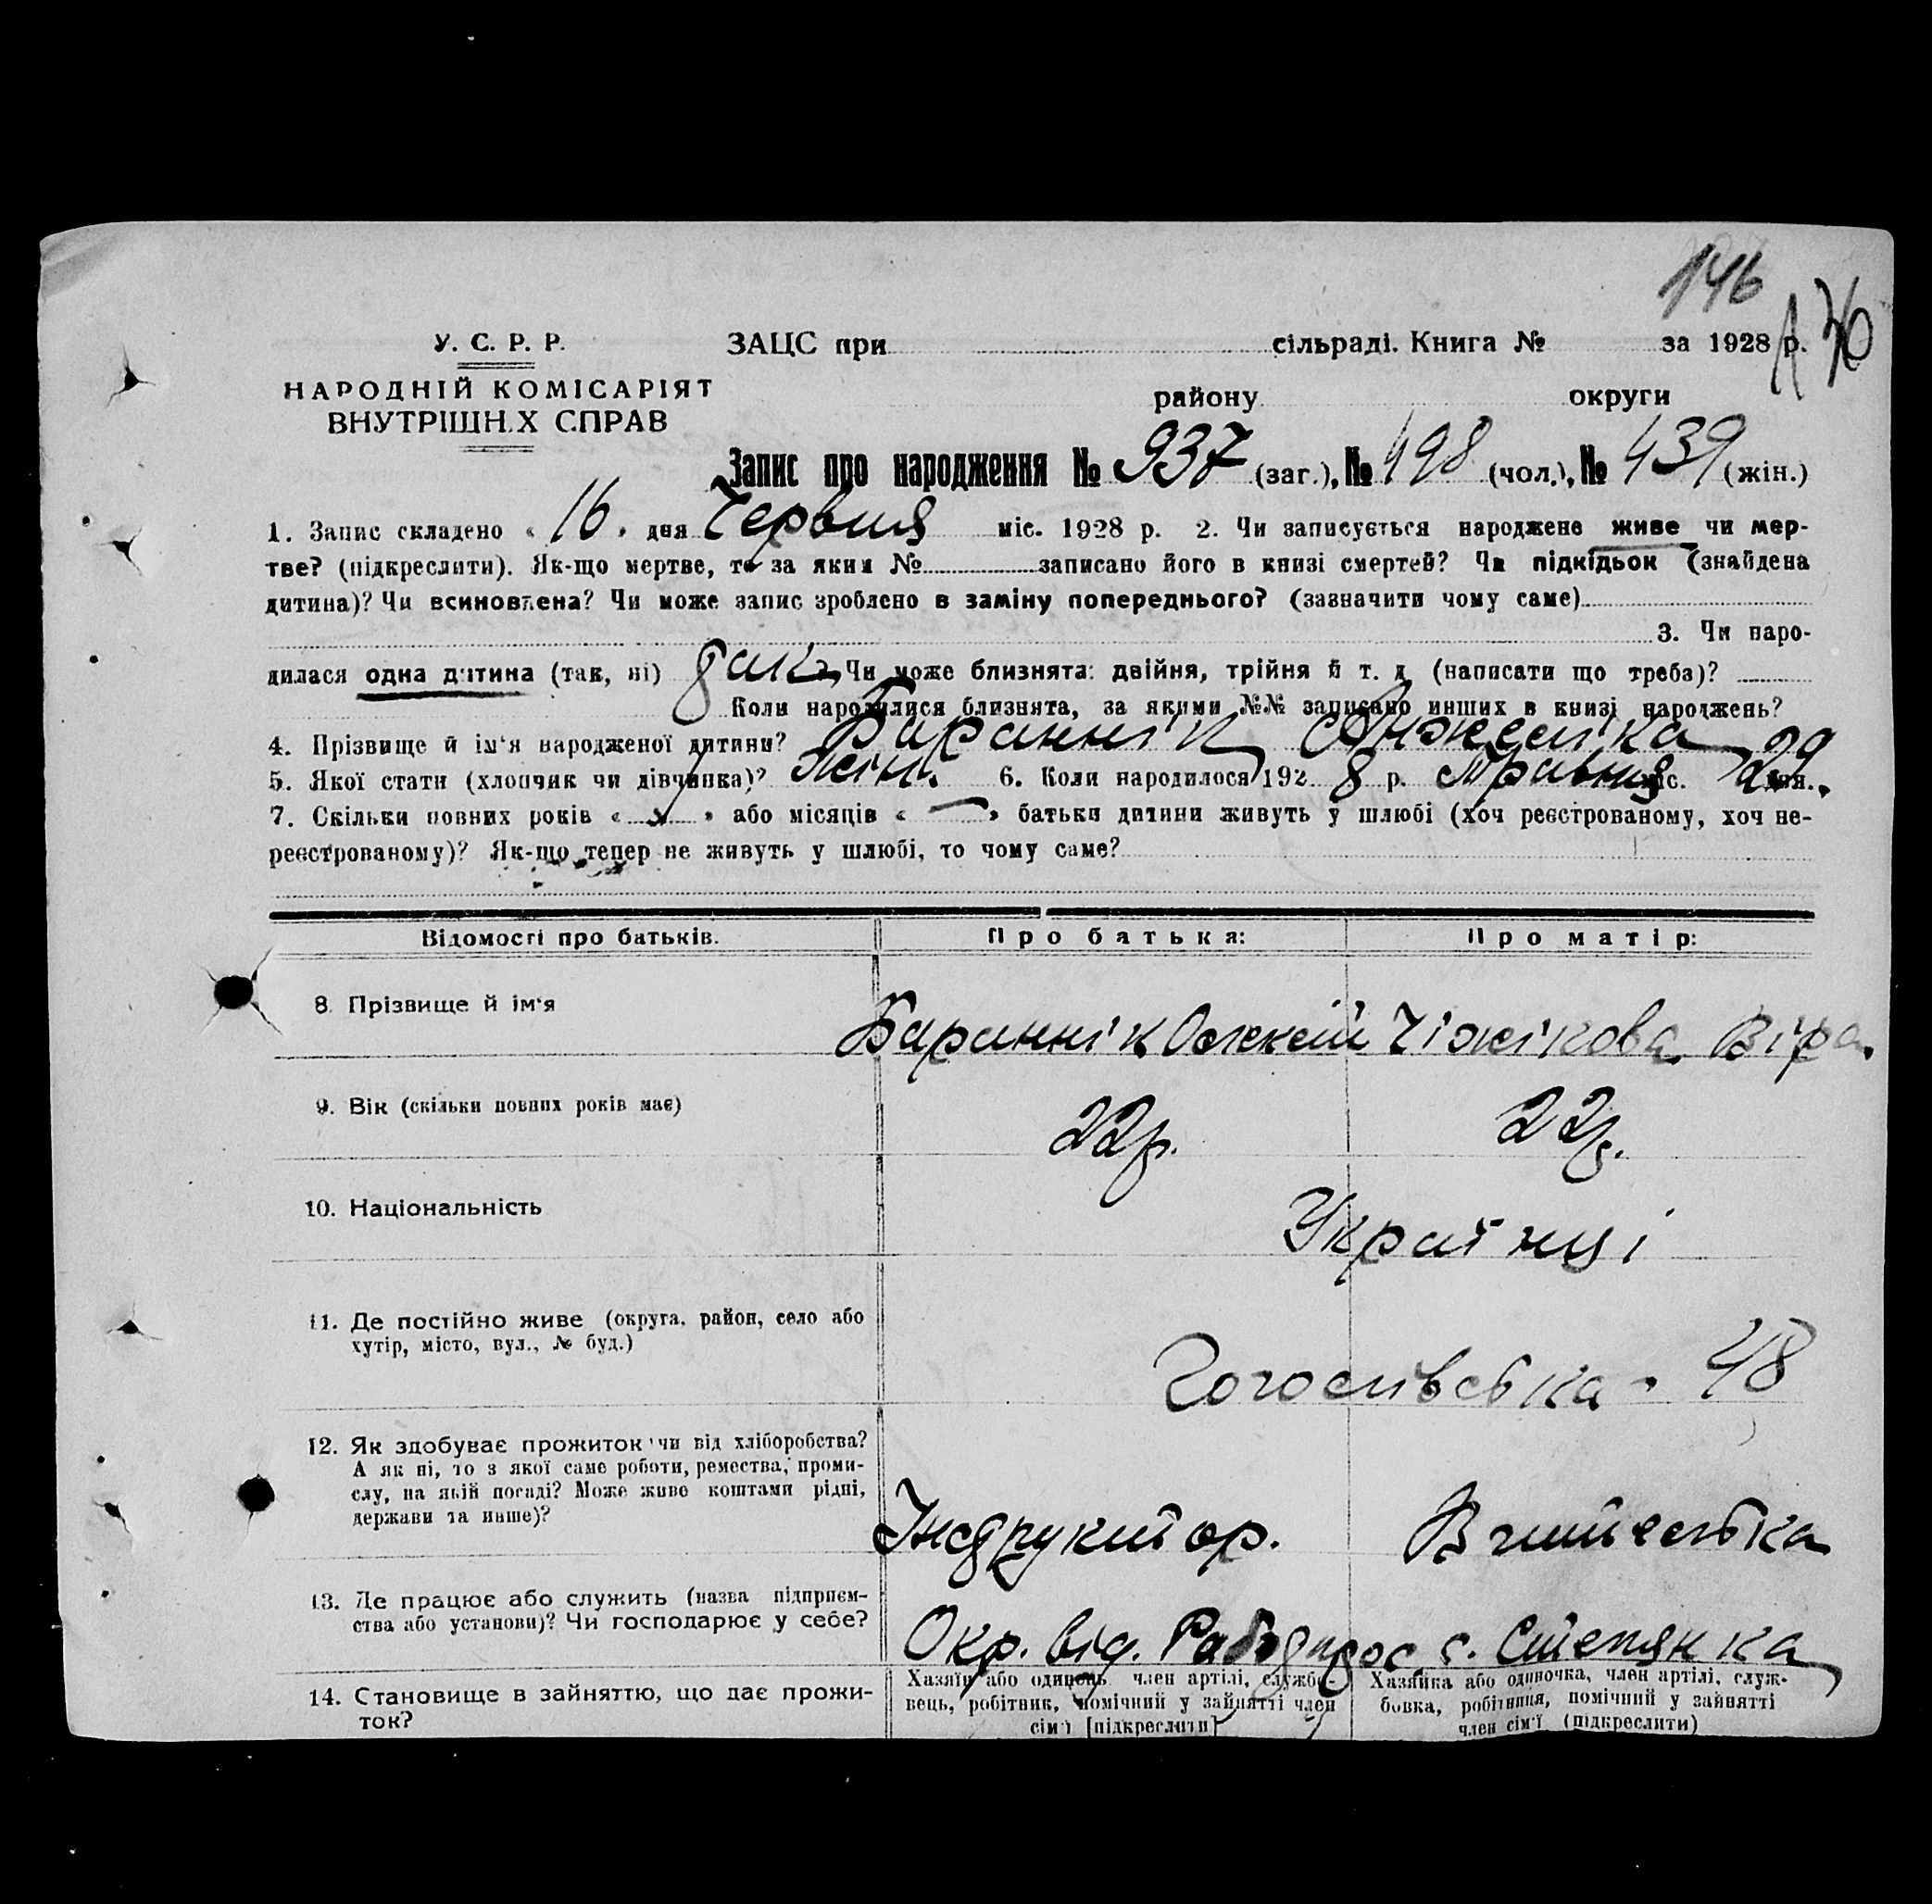 146
А 36
У. С. Р. Р. ЗАЦС при сільраді. Книга № за 1928 р.
НАРОДНІЙ КОМІСАРІЯТ
ВНУТРІШН.Х СПРАВ
району округи
Запис про народження № 937 (заг.), № 498 (чол.), № 439 (жін.)
1. Запис складено « 16 » дня Червня міс. 1928 р. 2. Чи записується народжене живе чи мер-
тве? (підкреслити). Як-що мертве, то за яким № записано його в книзі смертей? Чи підкідьок (знайдена
дитина)? Чи всиновлена? Чи може запис зроблено в заміну попереднього? (зазначити чому саме)
3. Чи наро-
дилася одна дитина (так, ні) так Чи може близнята: двійня, трійня й т. д. (написати що треба)?
Коли народилися близнята, за якими №№ записано инших в книзі народжень?
4. Прізвище й ім'я народженої дитини? Баранник Анжеліка
5. Якої стати (хлопчик чи дівчинка)? жін. 6. Коли народилося 192 8 р. травня міс. 29 дня.
7. Скільки повних років « » або місяців « — » батьки дитини живуть у шлюбі (хоч реєстрованому, хоч не-
реєстрованому)? Як-що тепер не живуть у шлюбі, то чому саме?
Відомості про батьків. Про батька: Про матір:
8. Прізвище й ім'я Бараннік Олексій Чіжікова Віра.
9. Вік (скільки повних років має) 22р. 22р.
10. Національність Українці
11. Де постійно живе (округа, район, село або
хутір, місто, вул., № буд.)
Гоголівська - 48
12. Як здобуває прожиток чи від хліборобства?
А як ні, то з якої саме роботи, ремества, проми-
слу, на якій посаді? Може живе коштами рідні,
держави та инше)?
Інструктор. Вчителька
13. Де працює або служить (назва підприєм-
ства або установи)? Чи господарює у себе?
Окр. від. Робітпрос с. Степянка
14. Становище в зайняттю, що дає прожи-
ток?
Хазяїн або одинець член артілі, службо-
вець, робітник, помічний у зайнятті член
сім'ї [підкреслити]
Хазяйка або одиночка, член артілі, служ-
бовка, робітниця, помічний у зайнятті
член сім'ї (підкреслити)